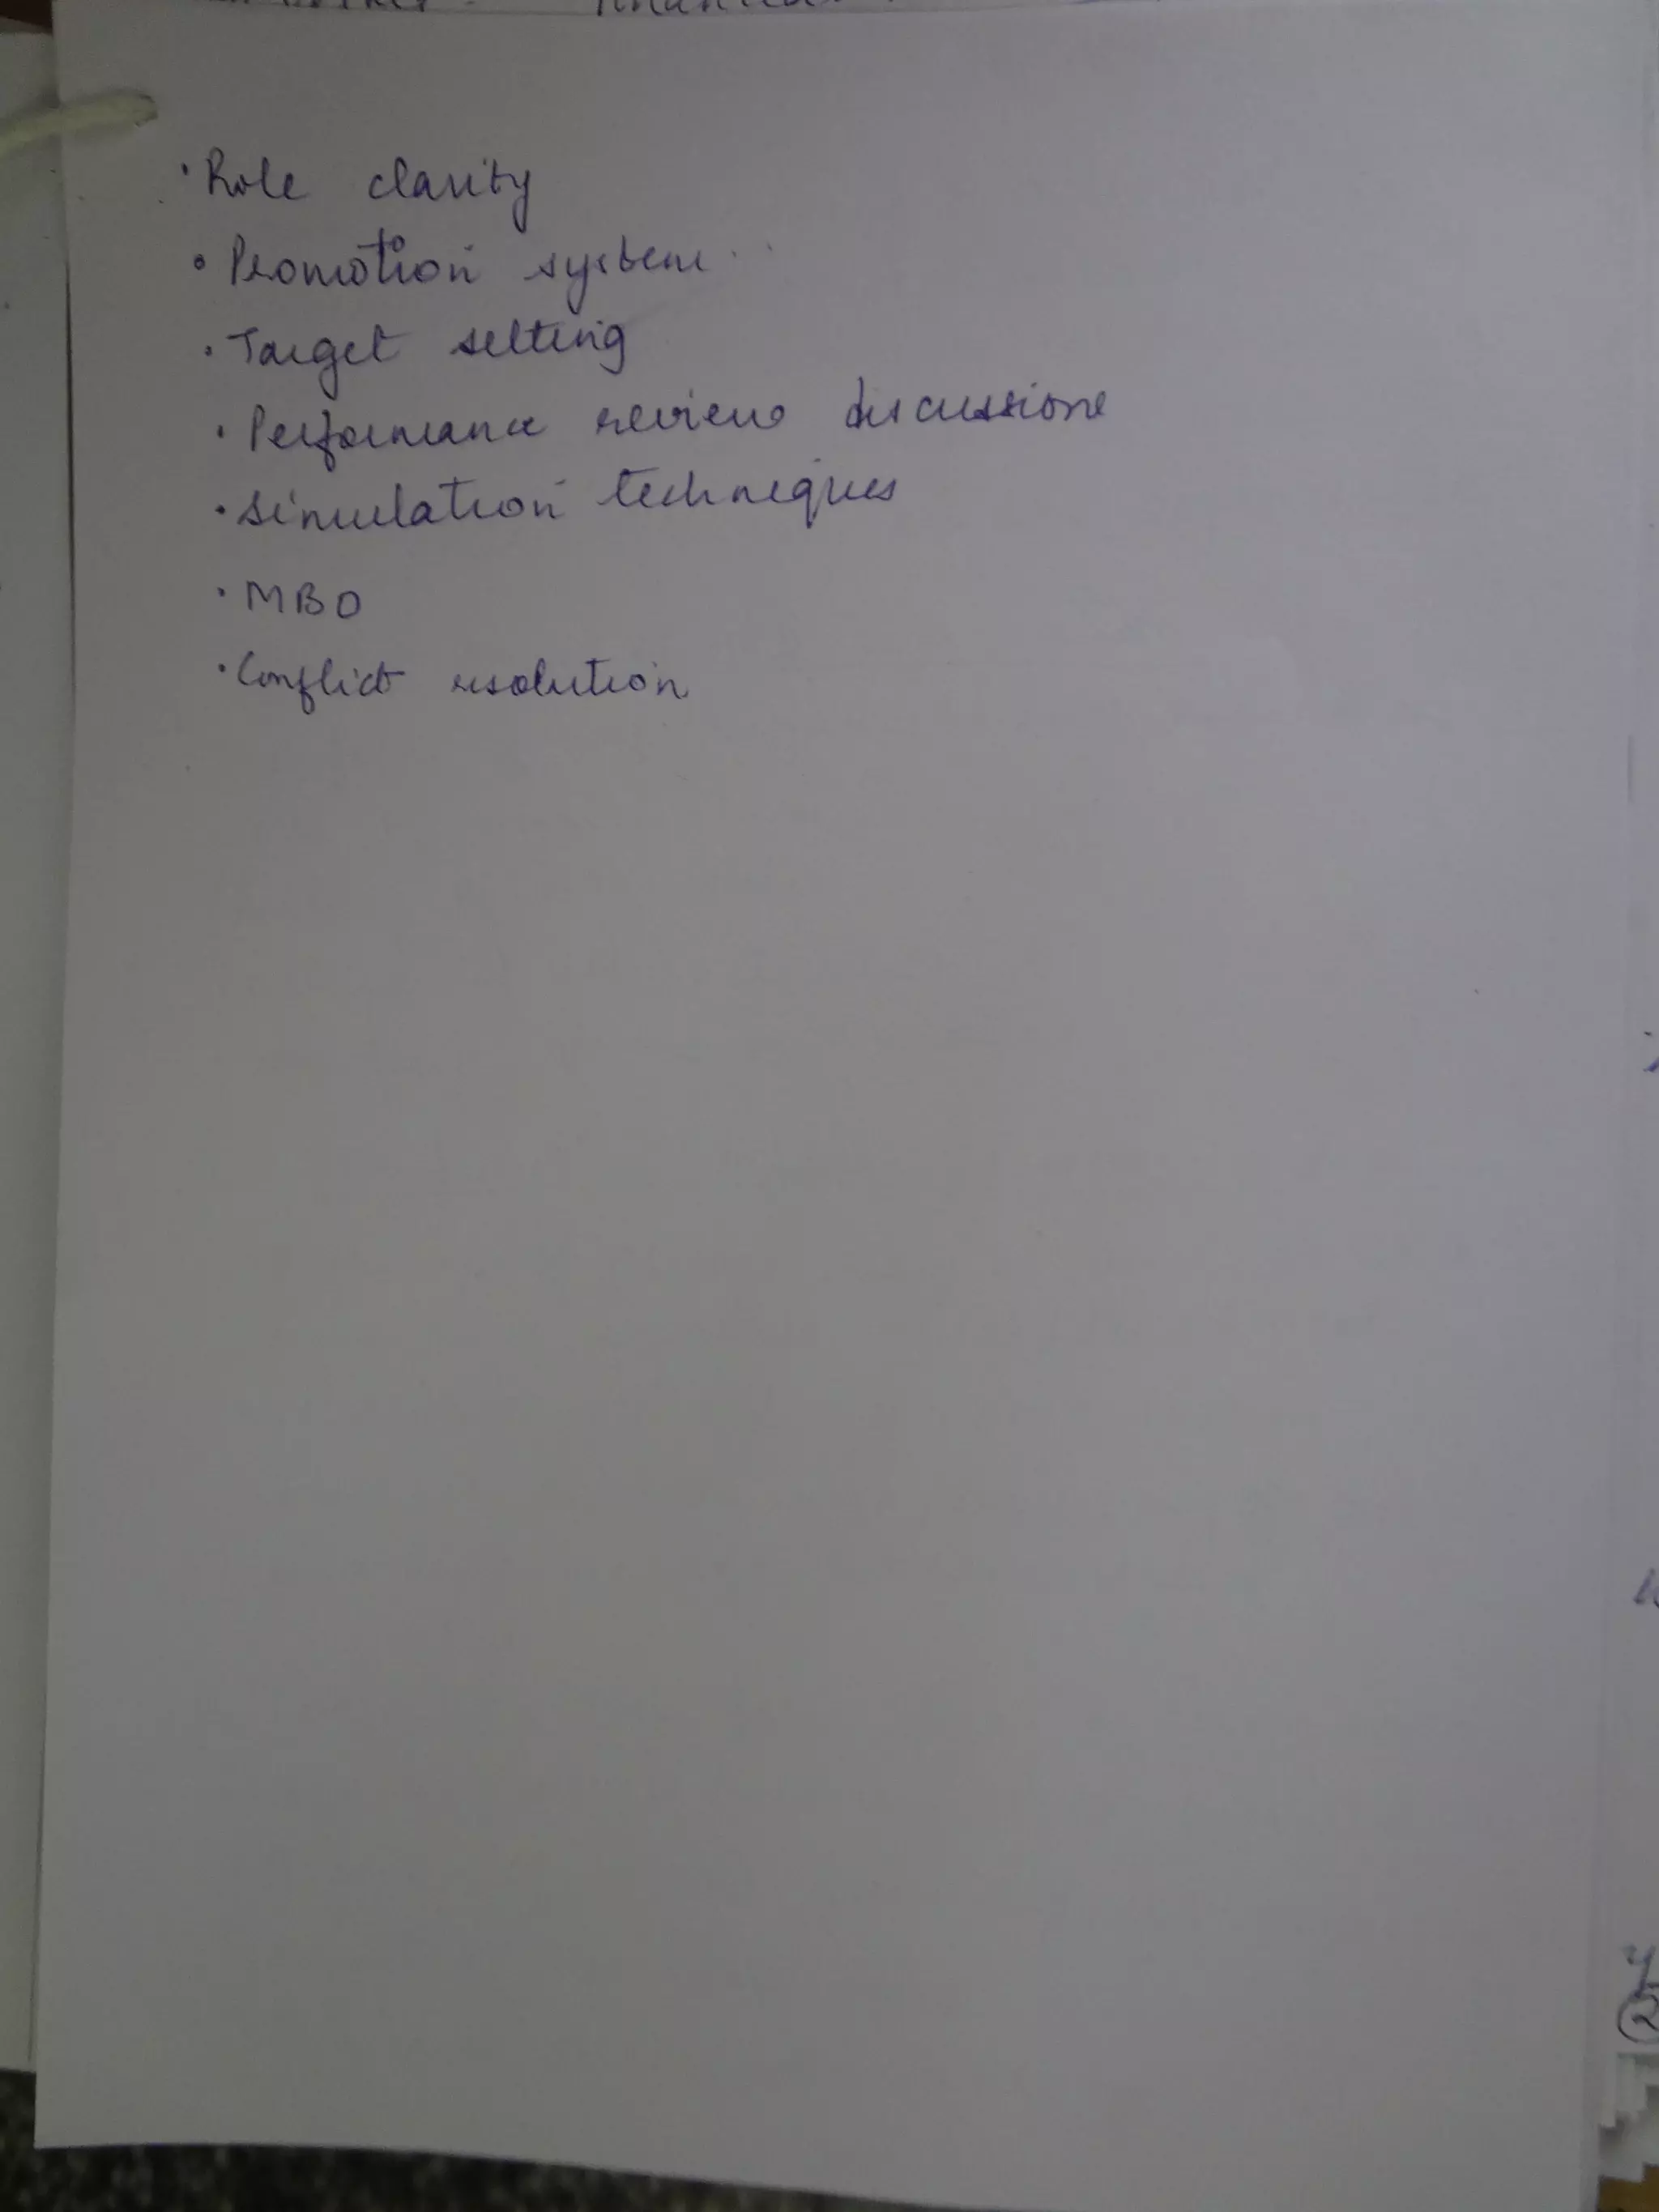 · Role clarity
· Promotion system
· Target setting
· Performance review discussions
· simulation techniques
· MBO
· Conflict resolution
2